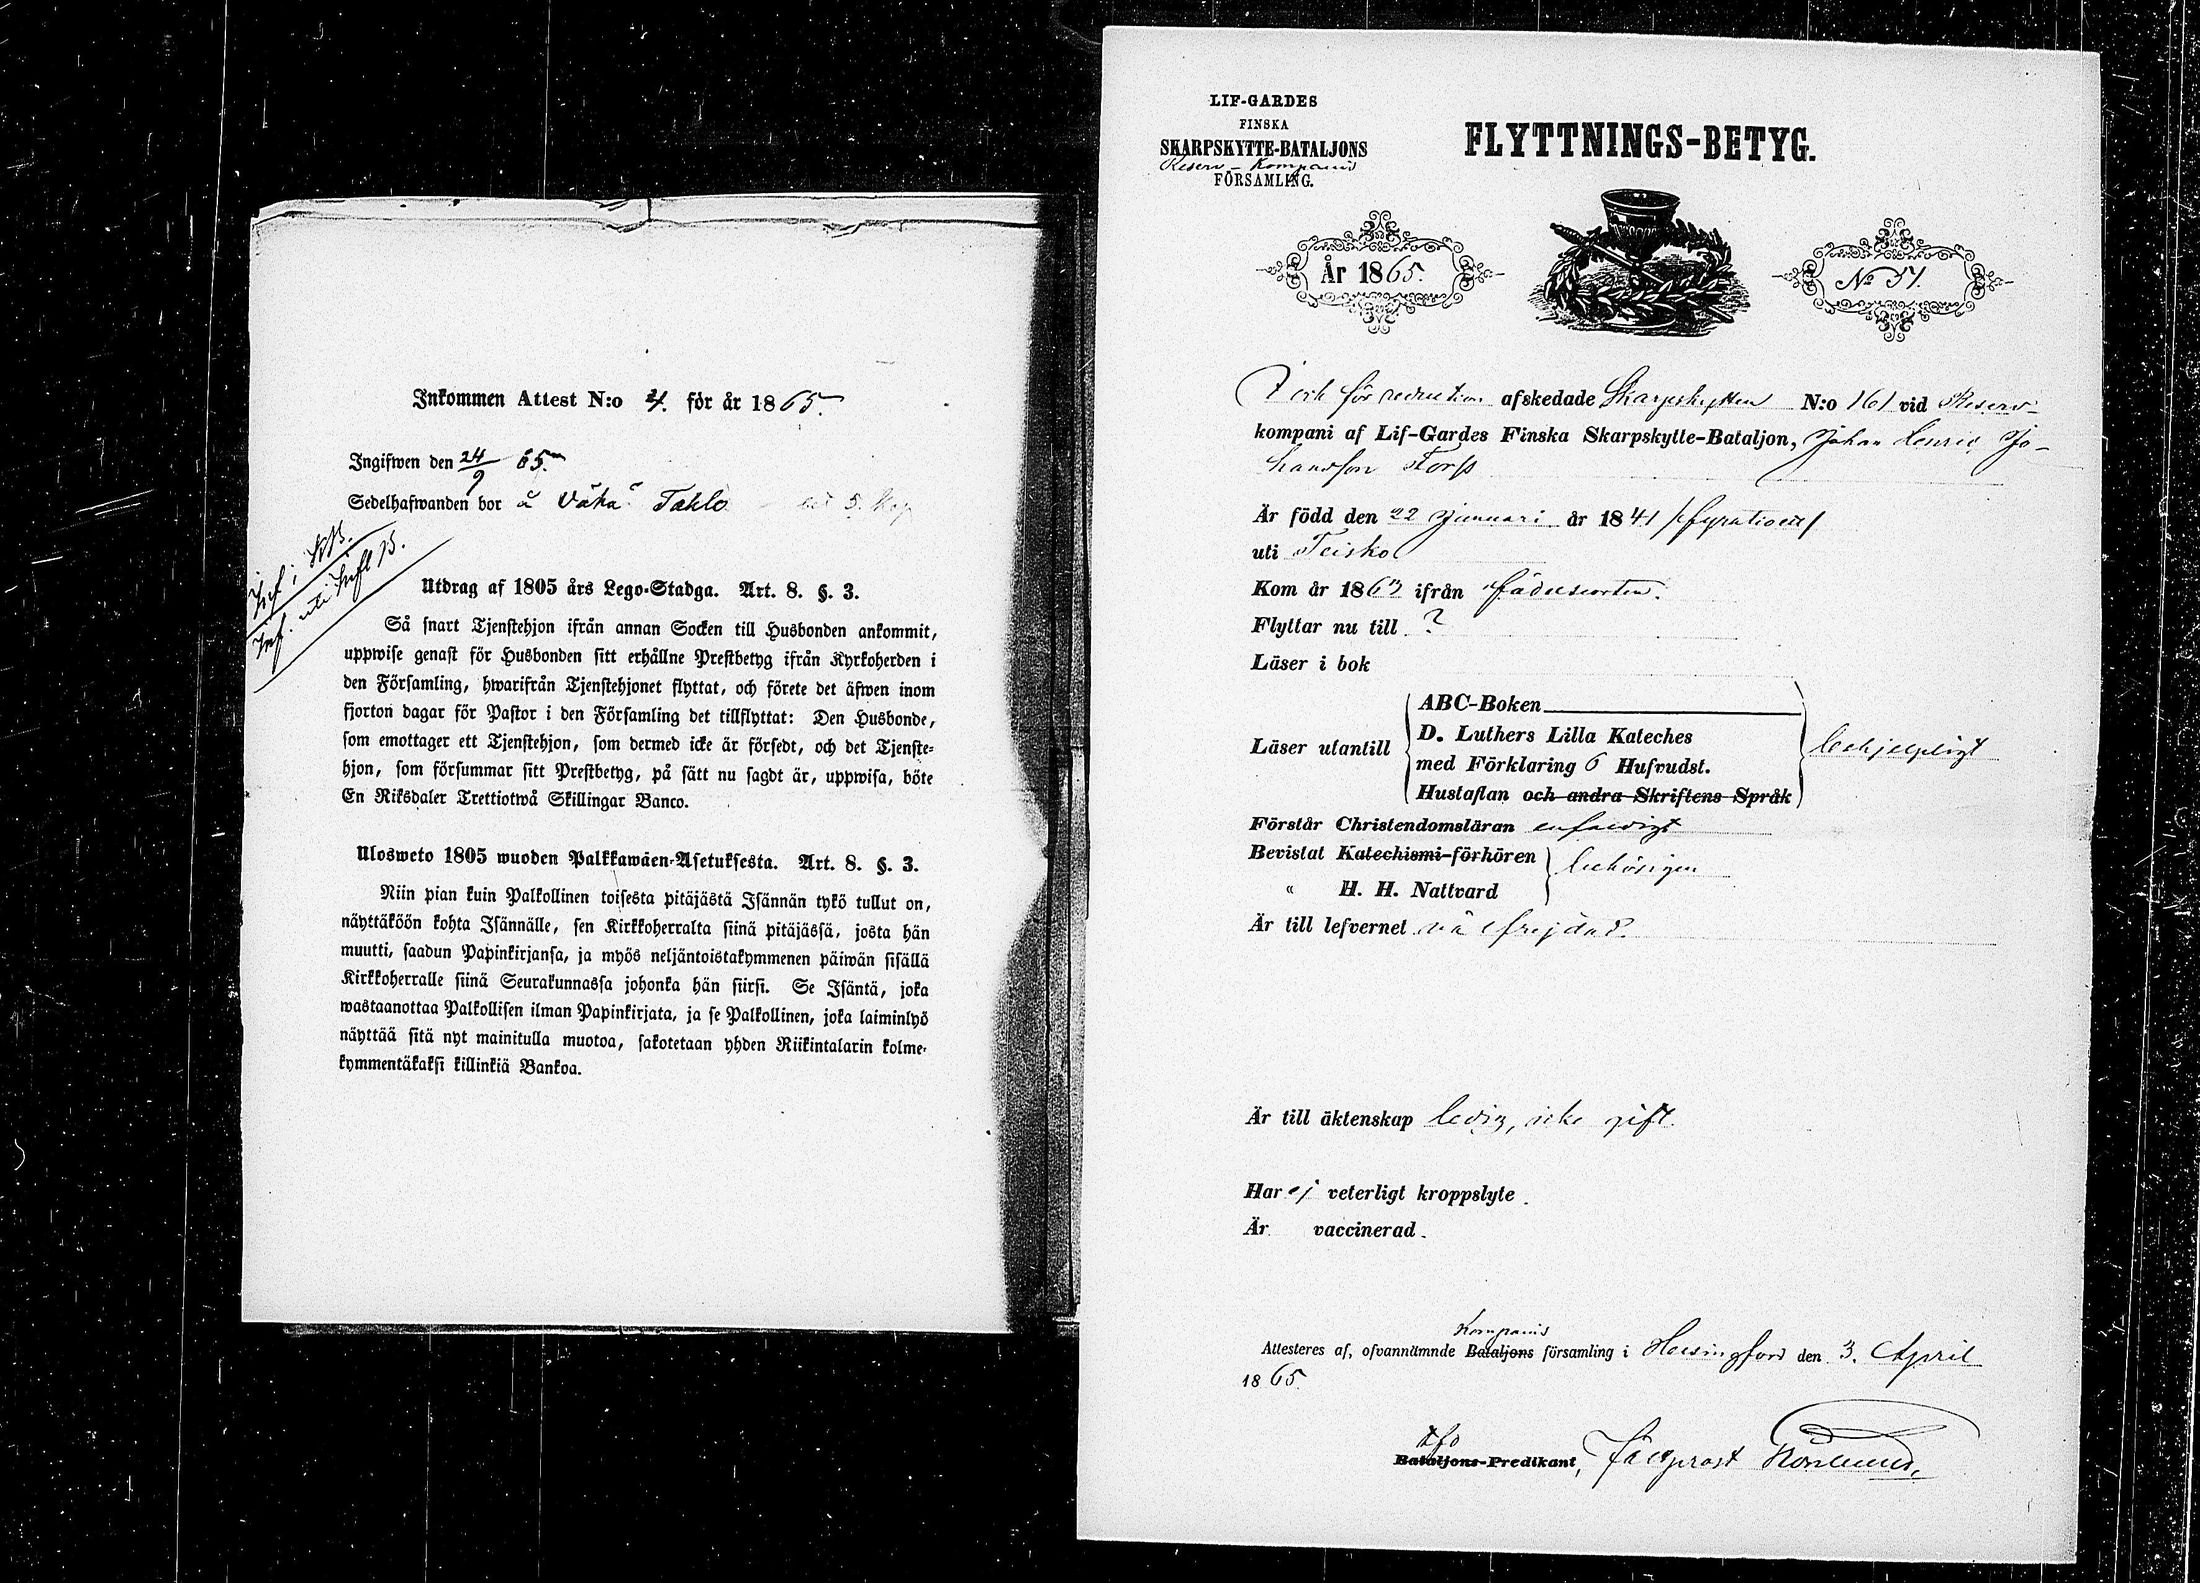 Inkommen Attest N:o 4. för år 1865.
Ingifwen den 24/9 65.
Sedelhafwanden bor å Väha Tahlo
Inf. i KB.
Inf. uti Infl B.
Utdrag af 1805 års Lego-Stadga. Art. 8. §. 3.
Så snart Tjenstehjon ifrån annan Socken till Husbonden ankommit,
uppwise genast för Husbonden sitt erhållne Prestbetyg ifrån Kyrkoherden i
den Församling, hwarifrån Tjenstehjonet flyttat, och förete det äfwen inom
fjorton dagar för Pastor i den Församling det tillflyttat: Den Husbonde,
som emottager ett Tjenstehjon, som dermed icke är försedt, och det Tjenste-
hjon, som försummar sitt Prestbetyg, på sätt nu sagdt är, uppwisa, böte
En Riksdaler Trettiotwå Skillingar Banco.
Ulosweto 1805 wuoden Palkkawäen-Asetuksesta. Art. 8. §. 3.
Niin pian kuin Palkollinen toisesta pitäjästä Isännän tykö tullut on,
näyttäköön kohta Isännälle, sen Kirkkoherralta siinä pitäjässä, josta hän
muutti, saadun Papinkirjansa, ja myös neljäntoistakymmenen päiwän sisällä
Kirkkoherralle siinä Seurakunnassa johonka hän siirsi. Se Isäntä, joka
wastaanottaa Palkollisen ilman Papinkirjata, ja se Palkollinen, joka laiminlyö
näyttää sitä nyt mainitulla muotoa, sakotetaan yhden Riikintalarin kolme-
kymmentäkaksi killinkiä Bankoa.
LIF-GARDES
FINSKA
SKARPSKYTTE-BATALJONS
Reserv-Kompanis
FÖRSAMLING.
FLYTTNINGS-BETYG.
År 1865.
No 51.
I och för reduction afskedade Skarpskytten N:o 161 vid Reserv-
kompani af Lif-Gardes Finska Skarpskytte-Bataljon, Johan Henric Jo-
hansson Torp
Är född den 22 Januari år 1841 /:fyrationett/
uti Teisko
Kom år 1863 ifrån födelseorten.
Flyttar nu till ?
Läser i bok
Läser utantill
ABC-Boken
D. Luthers Lilla Kateches
med Förklaring 6 Hufvudst.
Hustaflan och andra Skriftens Språk
behjelpligt
Förstår Christendomsläran enfaldigt
Bevistat Katechismi-förhören
" H. H. Nattvard
behörigen
Är till lefvernet välfrejdad.
Är till äktenskap ledig, icke gift.
Har ej veterligt kroppslyte.
Är vaccinerad.
Kompanis
Attesteres af, ofvannämnde Bataljons församling i Helsingfors den 3. April
1865.
Bataljons-Predikant, Fältprost